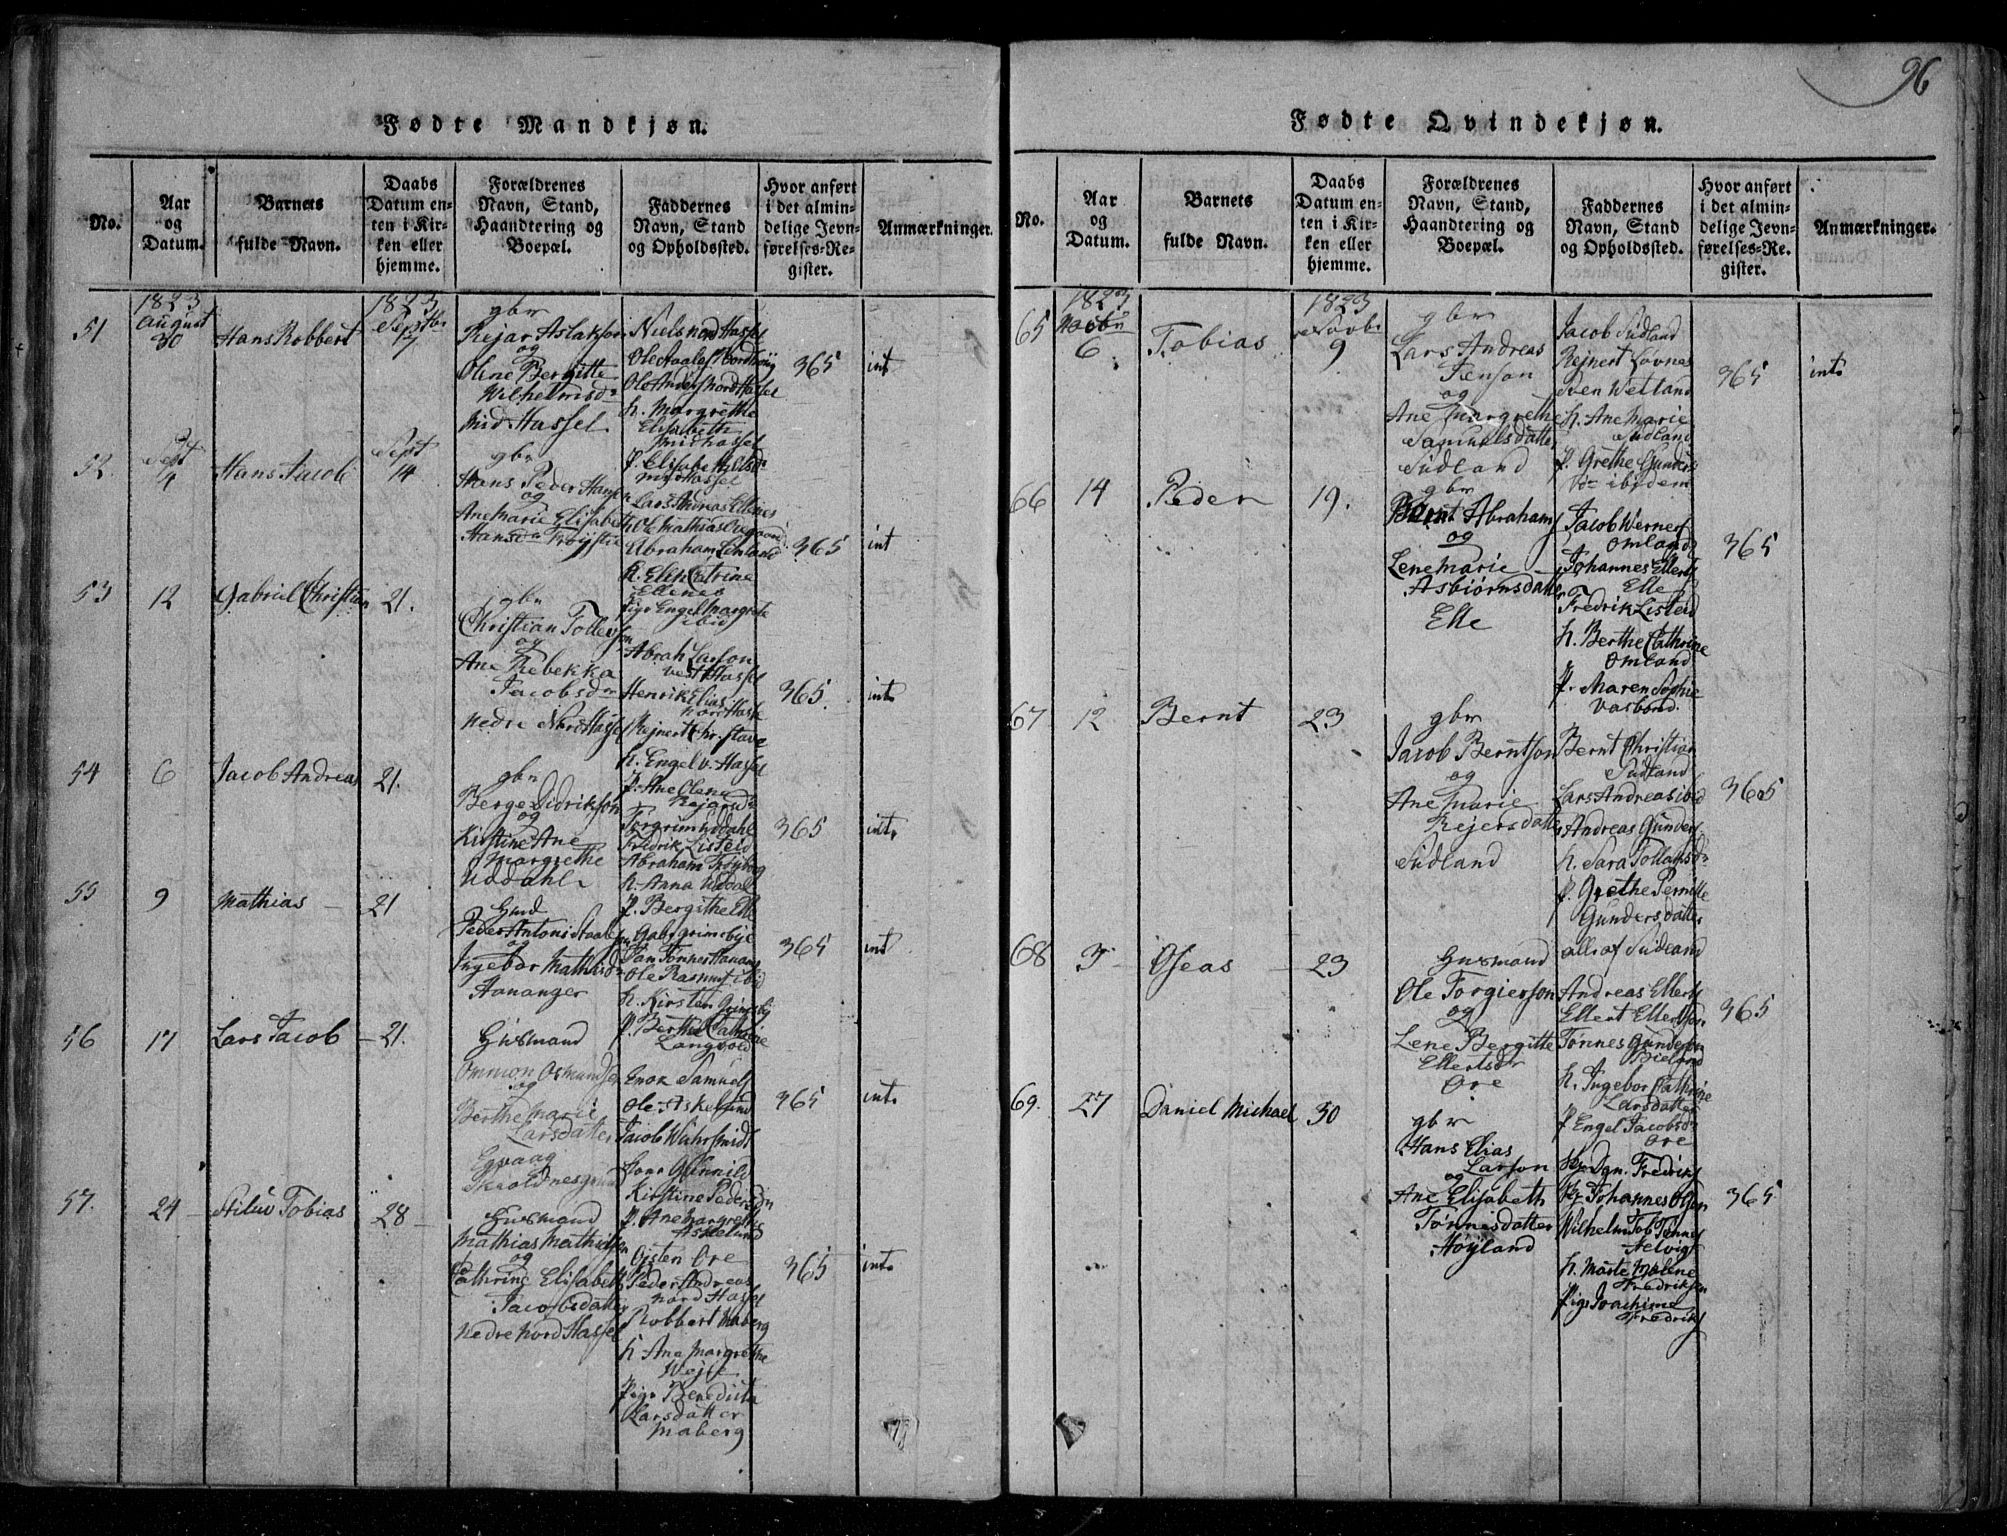 Fødte Mandkjøn.
No.
Aar
og
Datum.
Barnets
fulde Navn.
Daabs
Datum en-
ten i Kir-
ken eller
hjemme.
Forældrenes
Navn, Stand,
Haandtering og
Boepæl.
Faddernes
Navn, Stand
og Opholdssted.
Hvor anført
i det almin-
delige Jevn-
førelses-Re-
gister.
Anmærkninger.
51
1823
August
30
Hans Robbert
1823
Septbr
17
gbr
Rejar Aslakson
og
Oline Bergitte
Wilhelmsd
Mid Hassel
Niels nord Hassel
Ole Anders Nord Hassel
h. Margrethe
Elisabeth
midhassel
365
int
52.
Sept
4
Hans Jacob
Sept
14
gbr
Hans Peder Hansen
og
Ane Marie Elisabeth
Hansd
P. Elisabeth
mid Hassel
Lars Andreas Ellenes
Ole Mathias
Abraham
h. Ellen Catrine
Ellenes
Pige Engel Margrete
ibid
365
int
53
12
Gabriel Christian
21.
gbr
Christian Tollefson
og
Ane Rebekka
Jacobsdr
nedre Nord Hassel
Abrah Larson
vest Hassel
Henrik Elias
nord Hassel
Rejnert Chr. stave
h. Engel v. Hassel
P. Ane Olene
365.
int
54
6
Jacob Andreas
21.
gbr
Berge Didrikson
og
Kirstine Ane
Margrethe
Uddahl
Torgrim Uddahl
Fredrik Listeid
Abraham
h. Anna Uddal
P. Bergithe Elle
365
int.
55
9
Mathias
21
Hmd
Peder Antoni
og
Ingebor Mathisd
Aananger
Jan Tønnes Hanang
Ole Rasmus ibid
h. Kirsten
P. Berthe Cathrine
Langvold
365
int
56
17
Lars Jacob
21.
Husmand
Ommon Osmundsen
og
Berthe Marie
Larsdatter
Egvaag
Enok Samuels
Ole Askelund
Jacob
Gunnild
Kirstine Pedersdn
P. Ane Margrethe
Askelund
365
int.
57.
24
Tobias
28
Husmand
Mathias Mathiesen
og
Cathrine Elisabeth
Jacobsdatter
Nedre Nord Hassel
Ojsten Ore
Peder Andreas
nord Hassel
Robbert Maberg
h Ane Margrethe
Wojle
Pige Benedicta
Larsdatter
Maberg
365
int.
96
Fødte Qvindekjøn.
No.
Aar
og
Datum.
Barnets
fulde Navn.
Daabs
Datum en-
ten i Kir-
ken eller
hjemme.
Forældrenes
Navn, Stand,
Haandtering og
Boepæl.
Faddernes
Navn, Stand
og Opholdssted.
Hvor anført
i det almin-
delige Jevn-
førelses-Re-
gister.
Anmærkninger.
65
1823
6
Tobias
1823
Novbr
9
gbr
Lars Andreas
Jenson
og
Ane Margrethe
Samuelsdatter
Sudland
Jacob Sudland
Rejnert Lovnes
Sven Wetland
h. Ane Marie
Sudland
P. Grethe Gunders
ibidem
365
int.
66
14
Peder
19.
gbr
Bernt Abrahams
og
Lene Marie
Asbiørnsdatter
Elle
Jacob Werners
Omland
Johannes Ellerts
Elle
Fredrik Listeid
h. Berthe Cathrine
Omland
P. Maren Sophie
Vasbond.
365
67
12
Bernt
23
gbr
Jacob Berntson
og
Ane Marie
Rejersdatter
Sudland
Bernt Christian
Sudland
Lars Andreas ibid
Andreas Gunders
h. Sara Tollaksd
P. Grethe Pernille
Gundersdatter
alle af Sudland
365
68
3
Oseas
23
Husmand
Ole Torgierson
og
Lene Bergitte
Ellertsdr
Ore
Andreas Ellerts
Ellert Ellertson
Tønnes Gunderson
h. Ingebor Cathrine
Larsdatter
P Engel Jacobsd
Ore
365
69.
27
Daniel Michael
30
gbr
Hans Elias
Larson
og
Ane Elisabeth
Tønnisdatter
Høyland
Fredriks
Johannes Olsen
Wilhelm Tob Tønnes
Helvigt
h. Marte Malene
Fredriksen
Pige Joachime
Fredriks
365